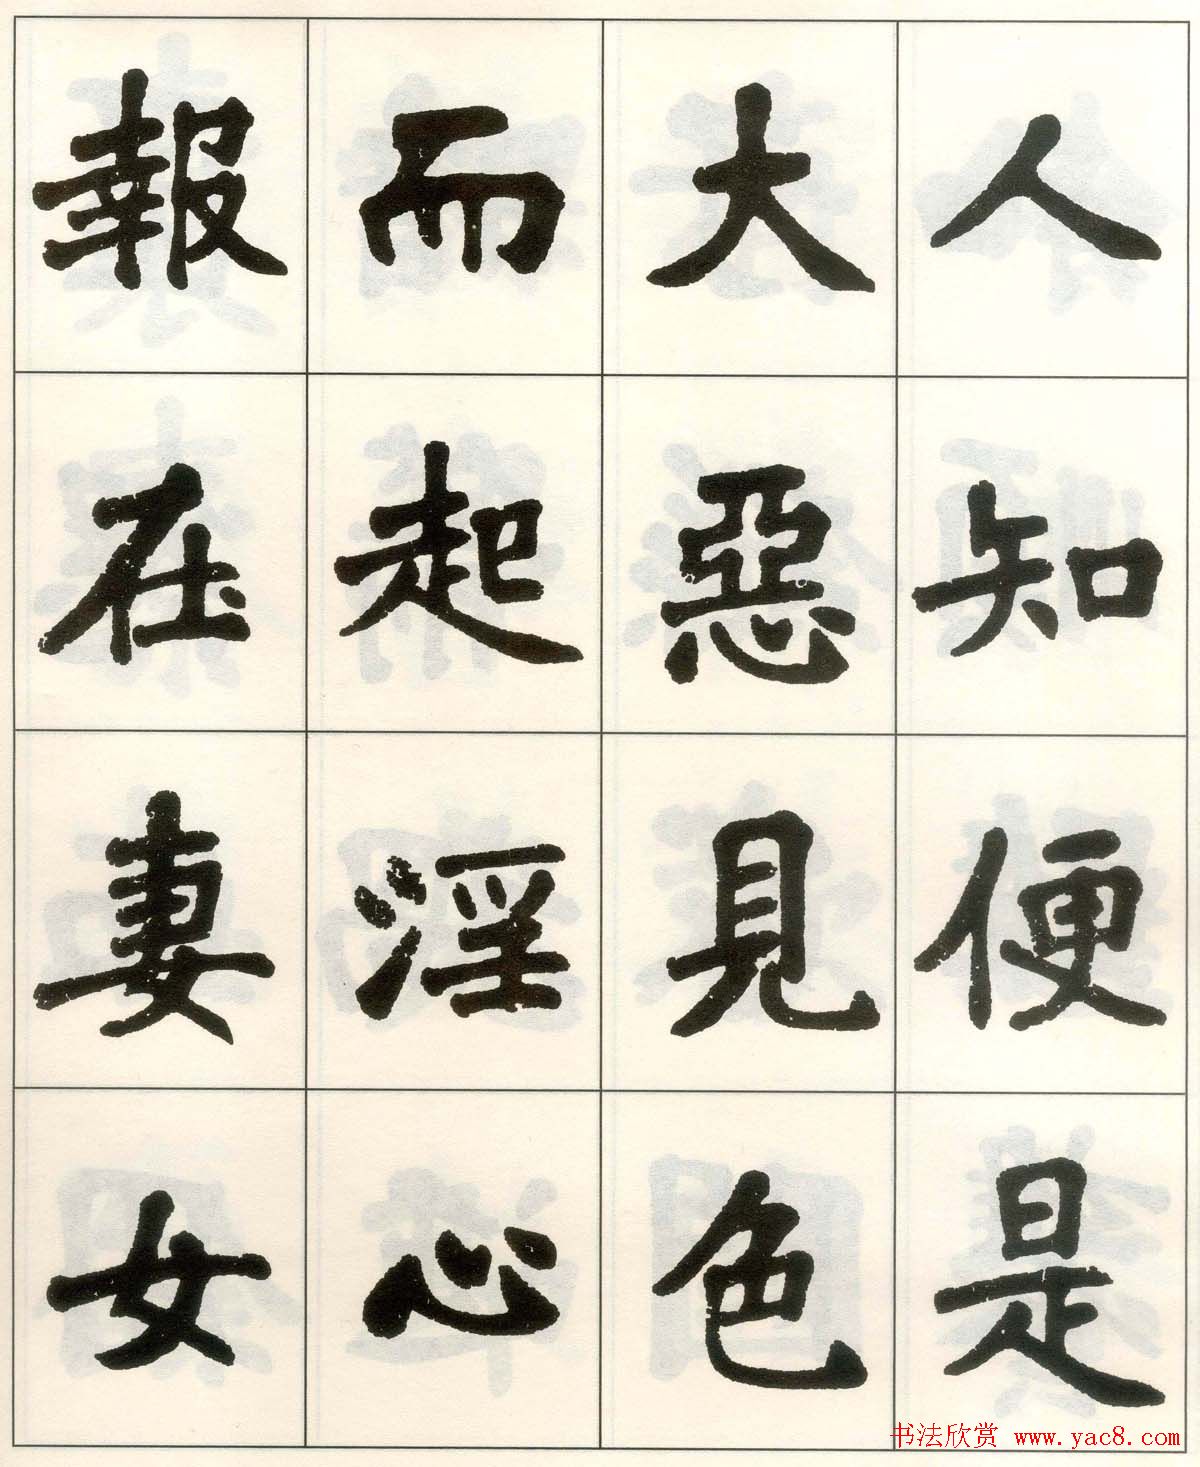 人知便是
大惡見色
而起淫心
報在妻女
书法欣赏 www.yac8.com